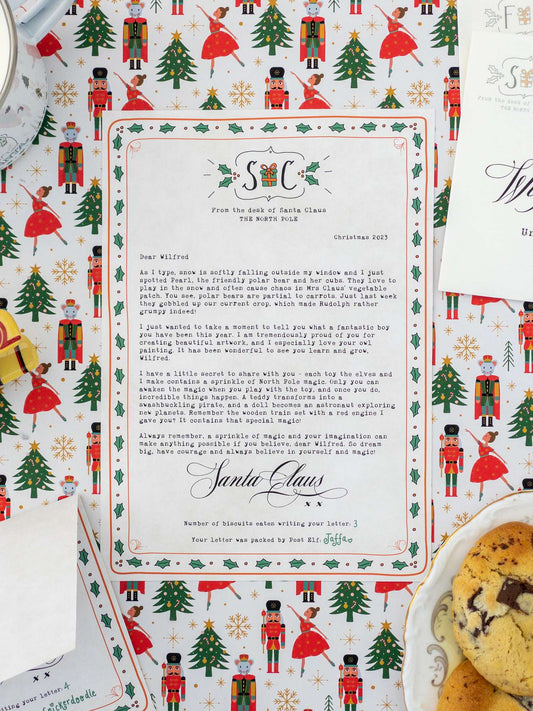 S C
From the desk of Santa Claus
THE NORTH POLE
Christmas 2023
Dear Wilfred
As I type, snow is softly falling outside my window and I just
spotted Pearl, the friendly polar bear and her cubs. They love to
play in the snow and often cause chaos in Mrs Claus' vegetable
patch. You see, polar bears are partial to carrots. Just last week
they gobbled up our current crop, which made Rudolph rather
grumpy indeed!
I just wanted to take a moment to tell you what a fantastic boy
you have been this year. I am tremendously proud of you for
creating beautiful artwork, and I especially love your owl
painting. It has been wonderful to see you learn and grow,
Wilfred.
I have a little secret to share with you - each toy the elves and
I make contains a sprinkle of North Pole magic. Only you can
awaken the magic when you play with the toy, and once you do,
incredible things happen. A teddy transforms into a
swashbuckling pirate, and a doll becomes an astronaut exploring
new planets. Remember the wooden train set with a red engine I
gave you? It contains that special magic!
Always remember, a sprinkle of magic and your imagination can
make anything possible if you believe, dear Wilfred. So dream
big, have courage and always believe in yourself and magic!
Santa Claus
x x
Number of biscuits eaten writing your letter: 3
Your letter was packed by Post Elf: Jaffa
S
From the desk of
THE NORTH
W
Un
x x
ing your letter: 4
nickerdoodle